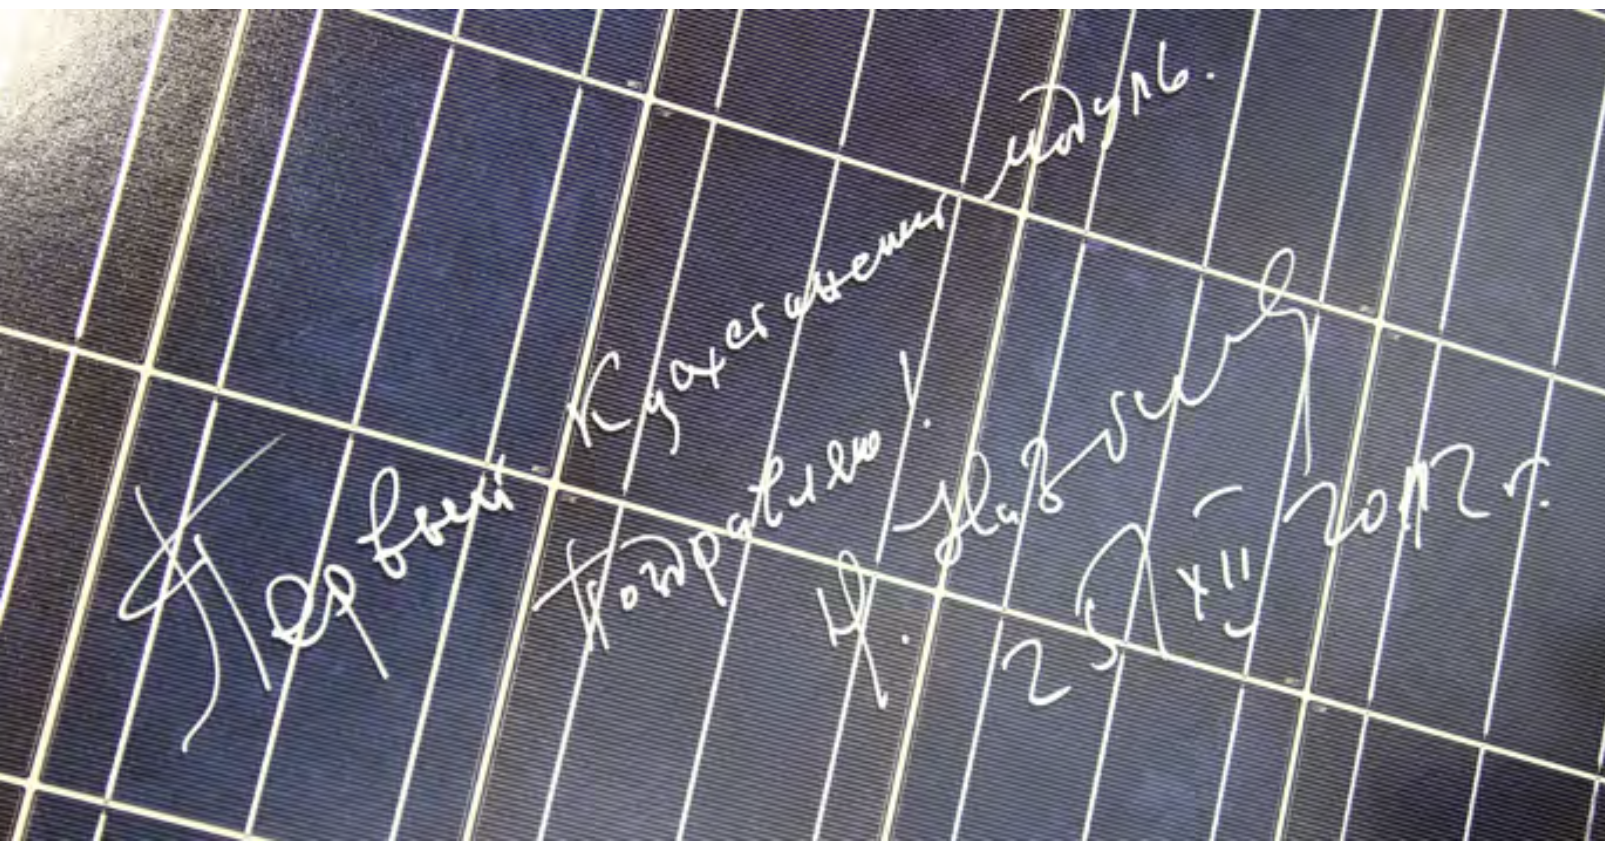 Первый Казахстанский модуль.
Поздравляю!
Н.
25 XII 2012 г.